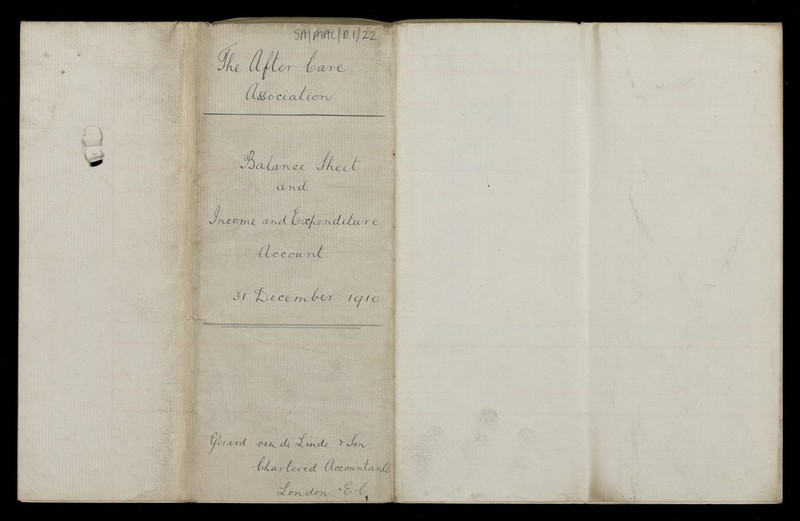 SA/MAC/D1/22
The After Care
Association
Balance Sheet
and
Income and Expenditure
Account
31 December 1910
Gérard van de Linde & Son
Chartered Accountants
London E.C.